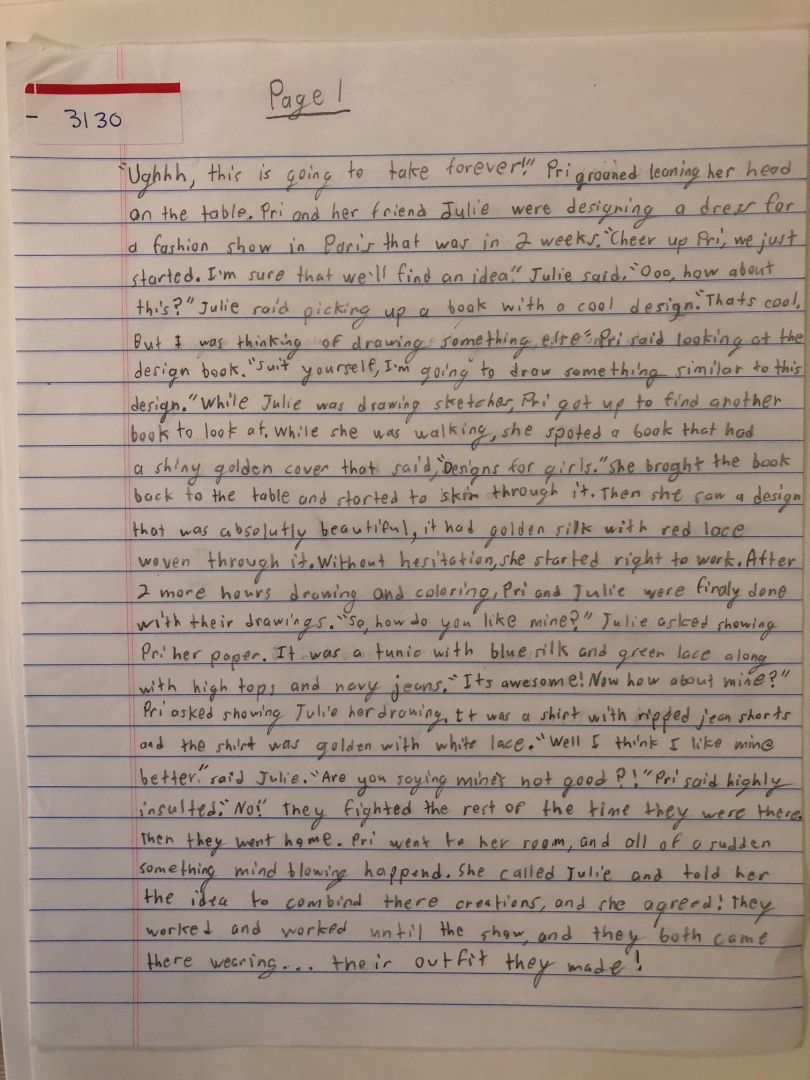 - 3130
Page 1
"Ughhh, this is going to take forever!" Pri groaned leaning her head
on the table. Pri and her friend Julie were designing a dress for
a fashion show in Paris that was in 2 weeks. "Cheer up Pri, we just
started. I'm sure that we'll find an idea." Julie said. "Ooo, how about
this?" Julie said picking up a book with a cool design. "Thats cool,
But I was thinking of drawing something else" Pri said looking at the
design book. "Suit yourself, I'm going" to draw something similar to this
design." While Julie was drawing sketches, Pri got up to find another
book to look at. While she was walking, she spoted a book that had
a shiny golden cover that said, "Designs for girls." She broght the book
back to the table and started to skim through it. Then she saw a design
that was absolutly beautiful, it had golden silk with red lace
woven through it. Without hesitation, she started right to work. After
2 more hours drawing and coloring, Pri and Julie were finaly done
with their drawings. "So, how do you like mine?" Julie asked showing
Pri her paper. It was a tunic with blue silk and green lace along
with high tops and navy jeans. "Its awesome! Now how about mine?"
Pri asked showing Julie her drawing. It was a shirt with ripped jean shorts
and the shirt was golden with white lace. "Well I think I like mine
better." said Julie. "Are you saying mine's not good?!" Pri said highly
insulted. "No!" They fighted the rest of the time they were there.
Then they went home. Pri went to her room, and all of a sudden
something mind blowing happend. She called Julie and told her
the idea to combind there creations, and she agreed! They
worked and worked until the show, and they both came
there wearing... their outfit they made!